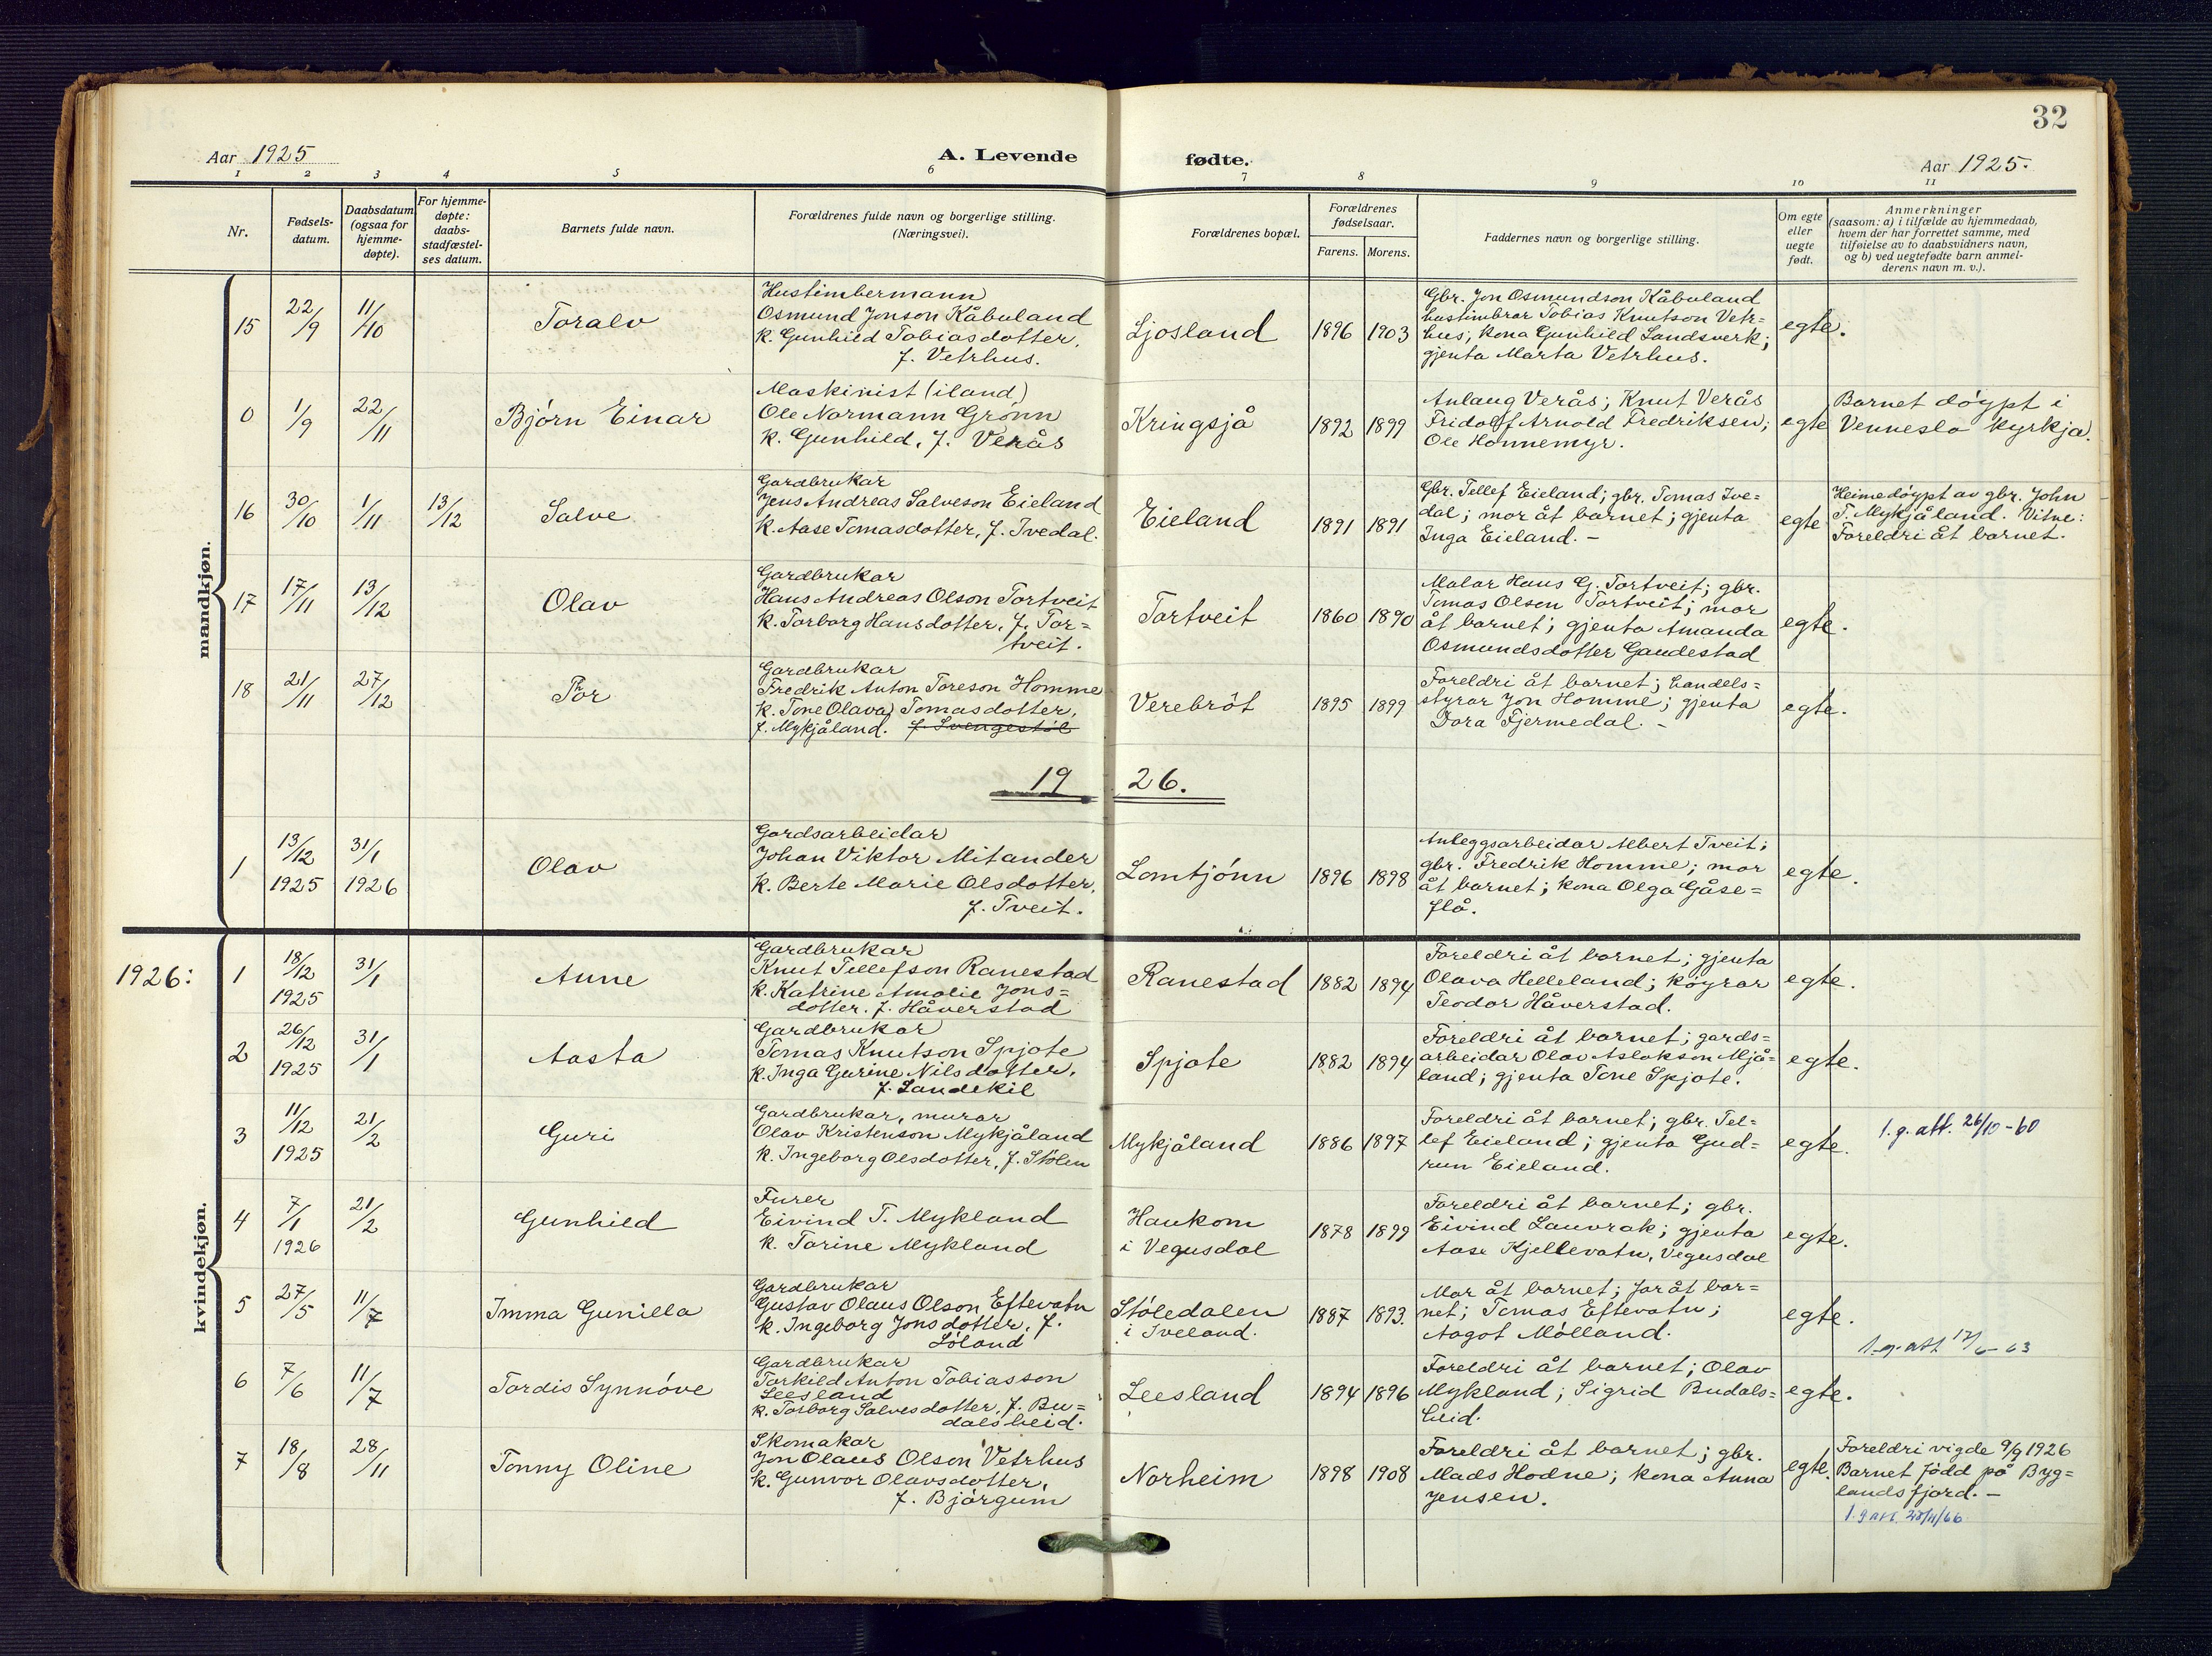 32
Aar 1925
A. Levende fødte.
Aar 1925.
1 2 3 4 5 6 7 8 9 10 11
Nr.
Fødsels-
datum.
Daabsdatum
(ogsaa for
hjemme-
døpte).
For hjemme-
døpte:
daabs-
stadfæstel-
ses datum.
Barnets fulde navn.
Forældrenes fulde navn og borgerlige stilling.
(Næringsvei).
Forældrenes bopæl.
Forældrenes
fødselsaar.
Farens. Morens.
Faddernes navn og borgerlige stilling.
Om egte
eller
uegte
født.
Anmerkninger
(saasom: a) i tilfælde av hjemmedaab,
hvem der har forrettet samme, med
tilføielse av to daabsvidners navn,
og b) ved uegtefødte barn anmel-
derens navn m. v.).
mandkjøn.
15
22/9
11/10
Toralv
Hustimbermann
Osmund Jonson Kåbuland
k. Gunhild Tobiasdotter,
f. Vetrhus.
Ljosland
1896 1903
Gbr. Jon Osmundson Kåbuland
hustimbrar Tobias Knutson Vetr=
hus; kona Gunhild Landsverk;
gjenta Marta Vetrhus.
egte.
0
1/9
22/11
Bjørn Einar
Maskinist (iland)
Ole Normann Grønn
k. Gunhild, f. Verås
Kringsjå
1892 1899
Anlaug Verås; Knut Verås
Fridolf Arnold Fredriksen;
Ole Honnemyr.
egte
Barnet døypt i
Vennesla kyrkja.
16
30/10
1/11
13/12
Salve
Gardbrukar
Jens Andreas Salveson Eieland
k. Aase Tomasdotter, f. Ivedal.
Eieland
1891 1891
Gbr. Tellef Eieland; gbr. Tomas Ive=
dal; mor åt barnet; gjenta
Inga Eieland. –
egte
Heimedøypt av gbr. John
T. Mykjåland. Vitne:
Foreldri åt barnet.
17
17/11
13/12
Olav
Gardbrukar
Hans Andreas Olson Tortveit
k. Torborg Hansdotter, f. Tor=
tveit.
Tortveit
1860 1890
Malar Hans G. Tortveit; gbr.
Tomas Olsen Tortveit; mor
åt barnet; gjenta Amanda
Osmundsdotter Gaudestad
egte.
18
21/11
27/12
Thor
Gardbrukar
Fredrik Anton Toreson Homme
k. Tone Olava Tomasdotter,
f. Mykjåland. f. Svengestøl
Verebrøt
1895 1899
Foreldri åt barnet; handels=
styrar Jon Homme; gjenta
Tora Fjermedal. –
egte.
1926.
1
13/12
1925
31/1
1926
Olav
Gardsarbeidar
Johan Viktor Mitander
k. Berte Marie Olsdotter,
f. Tveit.
Lomtjønn
1896 1898
Anleggsarbeidar Albert Tveit;
gbr. Fredrik Homme; mor
åt barnet; kona Olga Gåse=
flå.
egte.
1926:
kvindekjøn.
1
18/12
1925
31/1
Anne
Gardbrukar
Knut Tellefson Ranestad
k. Katrine Amalie Jons=
dotter. f. Håverstad
Ranestad
1882 1894
Foreldri åt barnet; gjenta
Olava Helleland; køyrar
Teodor Håverstad.
egte.
2
26/12
1925
31/1
Aasta
Gardbrukar
Tomas Knutson Spjote
k. Inga Gurine Nilsdotter,
f. Landekil
Spjote
1882 1894
Foreldri åt barnet; gards=
arbeidar Olav Aslakson Mjå=
land; gjenta Tone Spjote.
egte.
3
11/12
1925
21/2
Guri
Gardbrukar, murar
Olav Kristenson Mykjåland
k. Ingeborg Olsdotter, f. Stølen
Mykjåland
1886 1897
Foreldri åt barnet; gbr. Tel=
lef Eieland; gjenta Gud=
run Eieland.
egte.
1. g. att. 26/10-60
4
7/1
1926
21/2
Gunhild
Furer
Eivind T. Mykland
k. Torine Mykland
Haukom
i Vegusdal
1878 1899
Foreldri åt barnet; gbr.
Eivind Lauvrak; gjenta
Aase Kjellevatn, Vegusdal
egte.
5
27/5
11/7
Imma Gunilla
Gardbrukar
Gustav Olaus Olson Eftevatn
k. Ingeborg Jonsdotter, f.
Løland
Støledalen
i Iveland.
1887 1893.
Mor åt barnet; far åt bar=
net; Tomas Eftevatn;
Aagot Mølland.
egte.
1. g. att 17/6-63
6
7/6
11/7
Tordis Synnøve
Gardbrukar
Torkild Anton Tobiasson
Leesland
k. Torborg Salvesdotter, f. Bu=
dalsheid.
Leesland
1894 1896
Foreldri åt barnet; Olav
Mykland; Sigrid Budals=
heid.
egte.
7
18/8
28/11
Tonny Oline
Skomakar
Jon Olaus Olson Vetrhus
k. Gunvor Olavsdotter,
f. Bjørgum
Norheim
1898 1908
Foreldri åt barnet; gbr.
Mads Hodne; kona Anna
Jensen.
egte.
Foreldri vigde 9/9 1926
Barnet fødd på Byg=
landsfjord. –
1. g att.